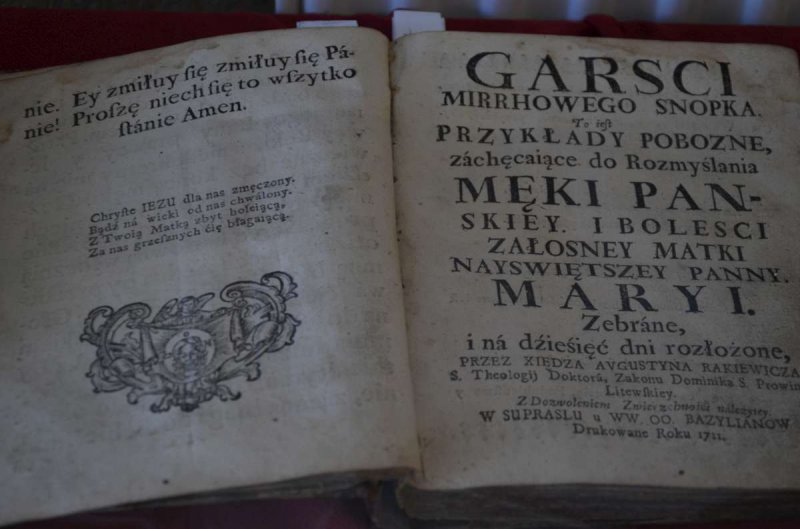 nie. Ey zmiłuy ſię zmiłuy ſię Pá-
nie! Proſzę niech ſię to wſzytko
ſtánie Amen.
Chryſte IEZU dla nas zmęczony.
Bądź ná wieki od nas chwálony.
Z Twoią Matką zbyt boleiącą,
Za nas grzeſznych cię błagaiącą.
GARSCI
MIRRHOWEGO SNOPKA.
To ieſt
PRZYKŁADY POBOZNE,
záchęcaiące do Rozmyślania
MĘKI PAN-
SKIEY. I BOLESCI
ZAŁOSNEY MATKI
NAYSWIĘTSZEY PANNY.
MÁRYI.
Zebráne,
i ná dźieśięć dni rozłożone,
PRZEZ XIĘDZA AVGUSTYNA RAKIEWICZA
S. Theologij Doktorá, Zakonu Dominiká S. Prowin
Litewſkiey.
Z Dozwoleniem Zwierzchnośći należytey.
W SUPRASLU u WW. OO. BAZYLIANOW
Drukowane Roku 1711.